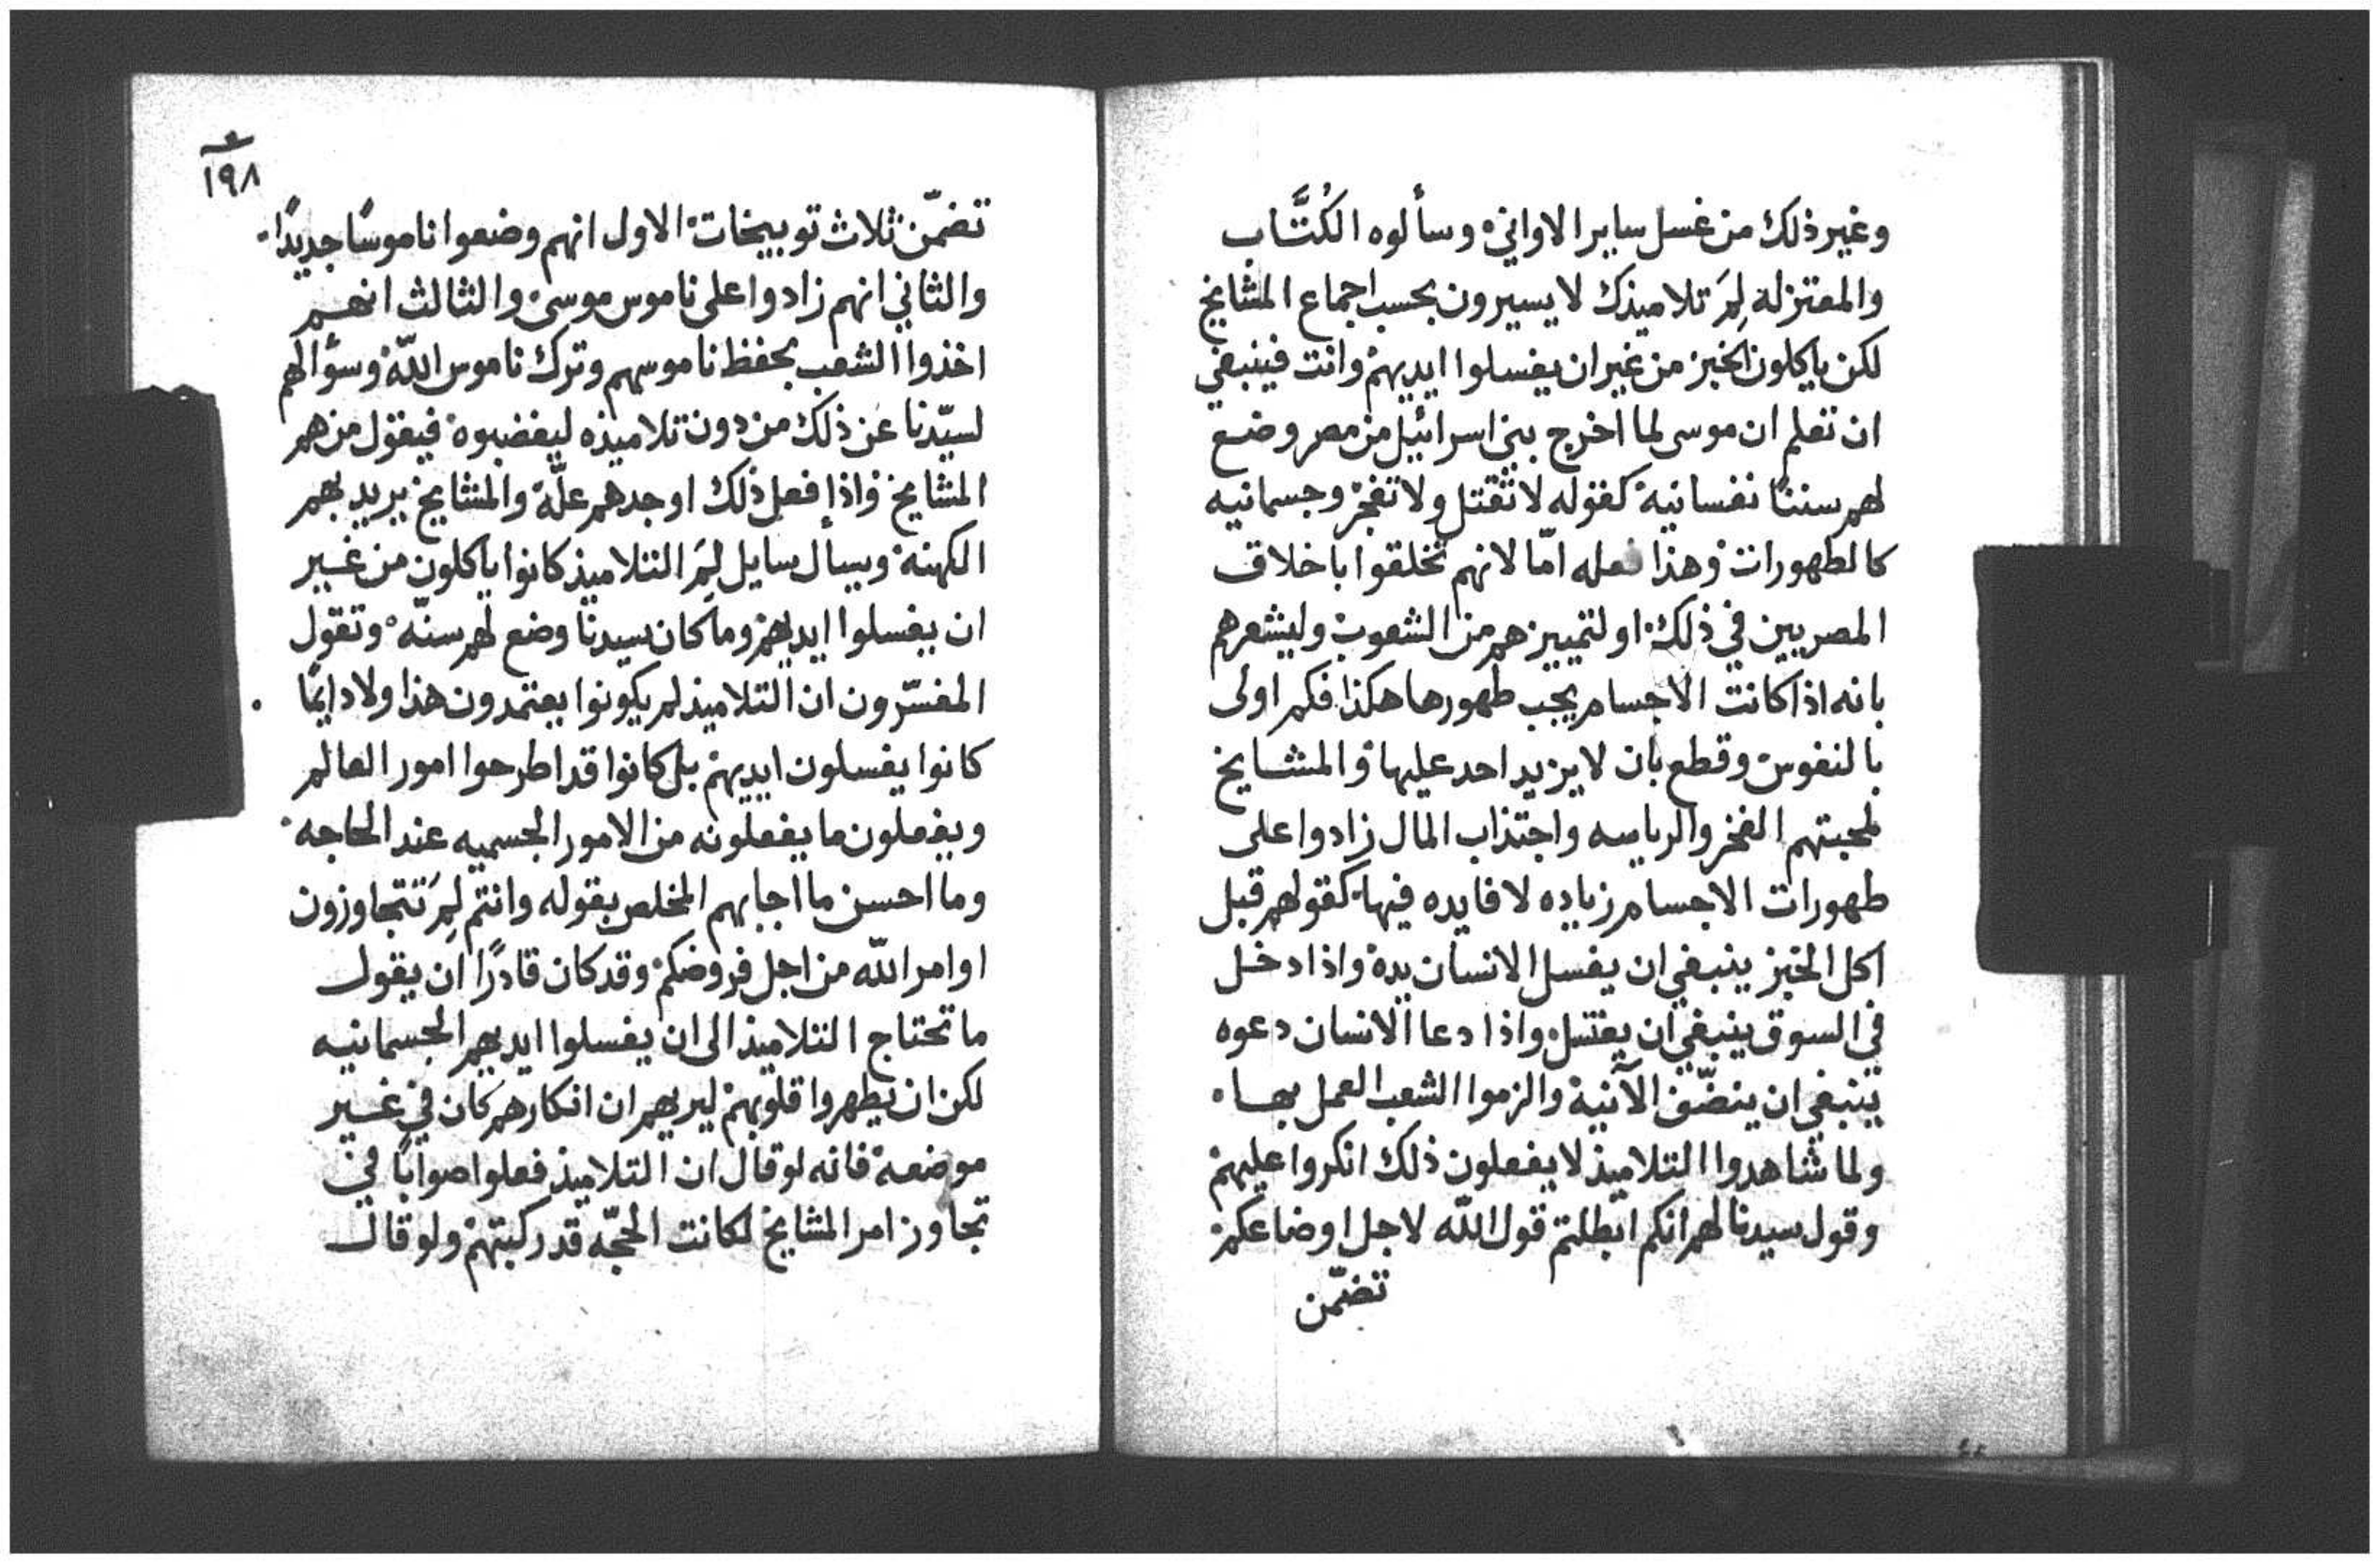 وغير ذلك من غسل ساير الاواني وسألوه الكُتَّاب
والمعتزله لِمَ تلاميذك لا يسيرون بحسب اجماع المشايخ
لكن ياكلون الخبز من غير ان يغسلوا ايديهم وانت فينبغي
ان تعلم ان موسى لما اخرج بني اسرائيل من مصر وضع
لهم سننًا نفسانية كقوله لا تقتل ولا تفجر وجسمانيه
كالطهورات وهذا فعله امّا لانهم تخلقوا باخلاق
المصريين في ذلك او لتمييزهم من الشعوب وليشعرهم
بانه اذا كانت الاجسام يجب طهورها هكذا فكم اولى
بالنفوس وقطع بان لا يزيد احد عليها والمشايخ
لمحبتهم الفخر والرياسه واجتذاب المال زادوا على
طهورات الاجسام زياده لا فايده فيها كقولهم قبل
اكل الخبز ينبغي ان يغسل الانسان يده واذا دخل
في السوق ينبغي ان يغتسل واذا دعا الانسان دعوه
ينبغي ان ينضّف الآنية والزموا الشعب العمل بها
ولما شاهدوا التلاميذ لا يفعلون ذلك انكروا عليهم
وقول سيدنا لهم انكم ابطلتم قول اللّه لاجل اوضاعكم
تضمّن
١٩٨
تضمّن ثلاث توبيخات الاول انهم وضعوا ناموسًا جديدًا
والثاني انهم زادوا على ناموس موسى والثالث انهم
اخذوا الشعب بحفظ ناموسهم وترك ناموس اللّه وسؤالهم
لسيّدنا عن ذلك من دون تلاميذه ليغضبوه فيقول من هم
المشايخ واذا فعل ذلك اوجدهم علّة والمشايخ يريد بهم
الكهنة ويسأل سايل لِمَ التلاميذ كانوا ياكلون من غير
ان يغسلوا ايديهم وما كان سيدنا وضع لهم سنّه وتقول
المفسّرون ان التلاميذ لم يكونوا يعتمدون هذا ولا دايمًا
كانوا يغسلون ايديهم بل كانوا قد اطرحوا امور العالم
ويفعلون ما يفعلونه من الامور الجسميه عند الحاجه
وما احسن ما اجابهم المخلص بقوله وانتم لِمَ تتجاوزون
اوامر اللّه من اجل فروضكم وقد كان قادرًا ان يقول
ما تحتاج التلاميذ الى ان يغسلوا ايديهم الجسمانيه
لكن ان يطهروا قلوبهم ليريهم ان انكارهم كان في غير
موضعه فانه لو قال ان التلاميذ فعلوا صوابًا في
تجاوز امر المشايخ لكانت الحجّه قد ركبتهم ولو قال